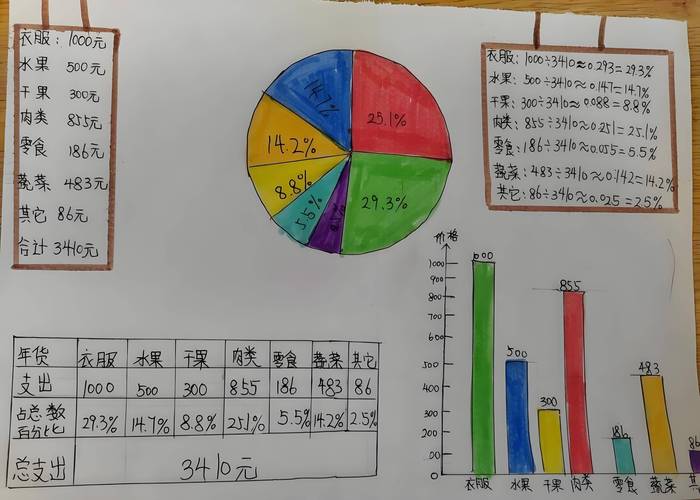 衣服：1000元
水果 500元
干果 300元
肉类 855元
零食 186元
蔬菜 483元
其它 86元
合计 3410元
14.7%
25.1%
14.2%
8.8%
5.5%
29.3%
衣服：1000÷3410≈0.293=29.3%
水果：500÷3410≈0.147=14.7%
干果：300÷3410≈0.088=8.8%
肉类：855÷3410≈0.251=25.1%
零食：186÷3410≈0.055=5.5%
蔬菜：483÷3410≈0.142=14.2%
其它：86÷3410≈0.025=2.5%
价格
1000
900
800
500
400
300
200
100
0
500
300
855
186
483
86
衣服 水果 干果 肉类 零食 蔬菜
年货 衣服 水果 干果 肉类 零食 蔬菜 其它
支出 1000 500 300 855 186 483 86
占总数百分比 29.3% 14.7% 8.8% 25.1% 5.5% 14.2% 2.5%
总支出 3410元